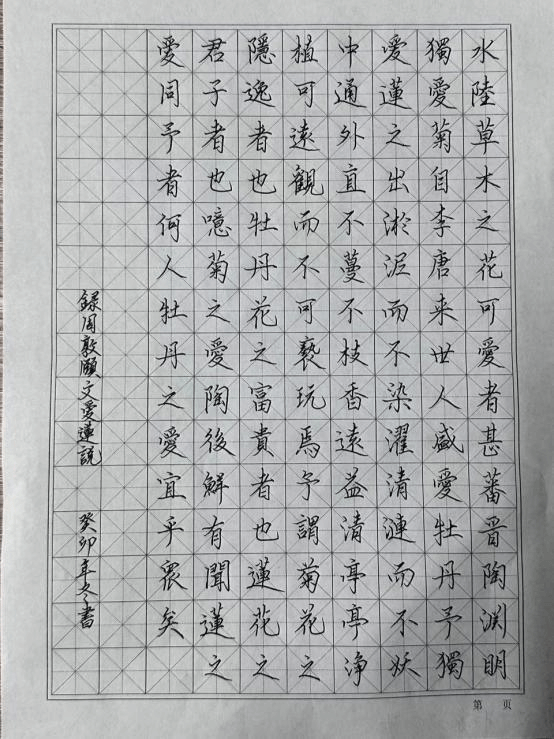 水陸草木之花可愛者甚蕃晋陶渊明
獨愛菊自李唐来世人盛愛牡丹予獨
愛蓮之出淤泥而不染濯清漣而不妖
中通外直不蔓不枝香遠益清亭亭浄
植可遠觀而不可褻玩焉予謂菊花之
隱逸者也牡丹花之富貴者也蓮花之
君子者也噫菊之愛陶後鮮有聞蓮之
愛同予者何人牡丹之愛宜乎衆矣
録周敦頤文愛蓮説 癸卯年冬書
第 页